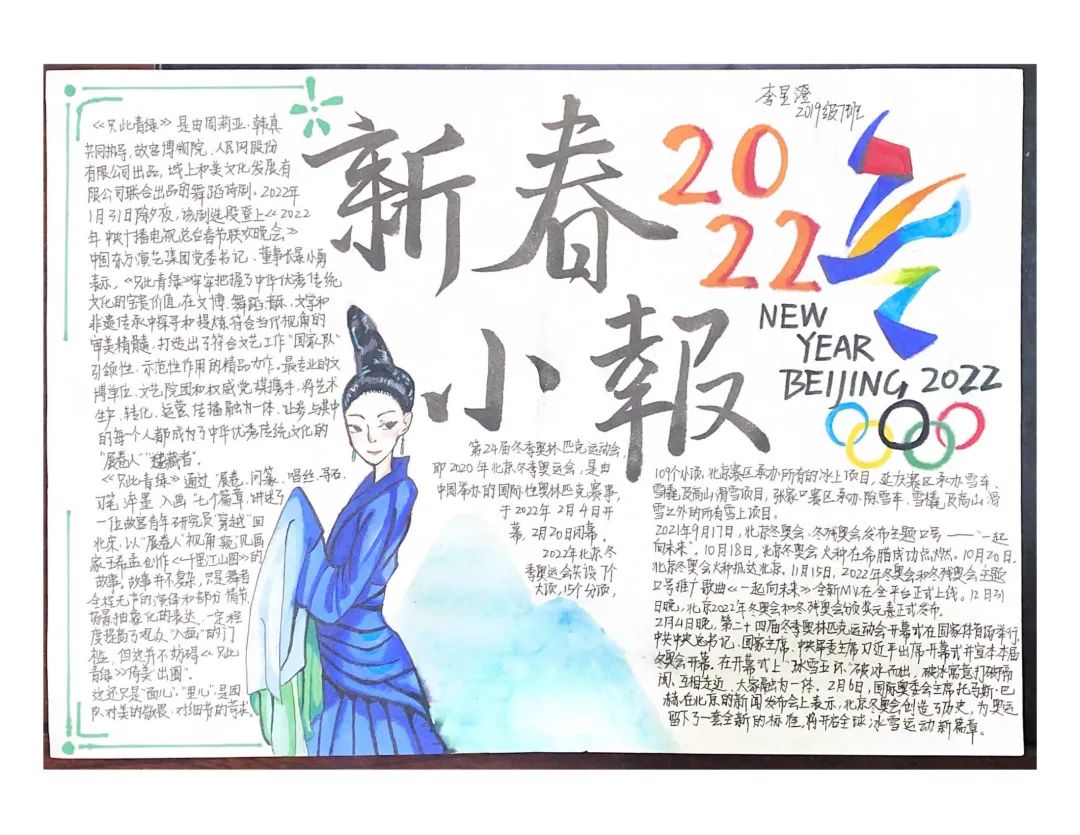 李星澄
2019级7班
新春
小報
2022
NEW
YEAR
BEIJING 2022
《只此青绿》是由周莉亚、韩真
共同执导，故宫博物院、人民网股份
有限公司出品，域上和美文化发展有
限公司联合出品的舞蹈诗剧。2022年
1月31日除夕夜，该剧选段登上《2022
年中央广播电视总台春节联欢晚会》
中国东方演艺集团党委书记、董事长景小勇
表示，《只此青绿》牢牢把握了中华优秀传统
文化的宝贵价值，在文博、舞蹈、音乐、文学和
非遗传承中探寻和提炼符合当代视角的
审美精髓，打造出了符合文艺工作“国家队”
引领性、示范性作用的精品力作。最专业的文
博单位、文艺院团和权威党媒携手，将艺术
生产、转化、运营、传播融为一体，让参与其中
的每个人都成为了中华优秀传统文化的
“展卷人”“ 藏者”。
《只此青绿》通过“展卷、问篆、唱丝、寻石、
习笔、淬墨、入画”七个篇章，讲述了
一位故宫青年研究员“穿越”回
北宋，以“展卷人”视角窥见画
家王希孟创作《千里江山图》的
故事。故事并不复杂，只是舞者
全程无声的演绎和部分情节
场景抽象化的表达，一定程
度提高了观众“入画”的门
槛，但这并不妨碍《只此
青绿》“倚美”出圈”。
这还只是“面儿”，“里儿”是团
队对美的敬畏、对细节的苛求。
第24届冬季奥林匹克运动会，
即2020年北京冬季奥运会，是由
中国举办的国际性奥林匹克赛事，
于2022年2月4日开
幕，2月20日闭幕。
2022年北京冬
季奥运会共设7个
大项，15个分项，
109个小项，北京赛区承办所有的冰上项目，延庆赛区承办雪车、
雪橇及高山滑雪项目，张家口赛区承办除雪车、雪橇及高山滑
雪之外的所有雪上项目。
2021年9月17日，北京冬奥会、冬残奥会发布主题口号——“一起
向未来”。10月18日，北京冬奥会火种在希腊成功点燃。10月20日，
北京冬奥会火种抵达北京。11月15日，2022年冬奥会和冬残奥会主题
口号推广歌曲《一起向未来》全新MV在全平台正式上线。12月31
日晚，北京2022年冬奥会和冬残奥会颁奖元素正式发布。
2月4日晚，第二十四届冬季奥林匹克运动会开幕式在国家体育场举行，
中共中央总书记、国家主席、中央军委主席习近平出席开幕式并宣布本届
冬奥会开幕。在开幕式上“冰雪五环”“破冰而出，破冰寓意打破隔
阂，互相走近，大家融为一体。2月6日，国际奥委会主席托马斯·巴
赫在北京的新闻发布会上表示，北京冬奥会创造了历史，为奥运
留下了一套全新的标准，将开启全球冰雪运动新篇章。